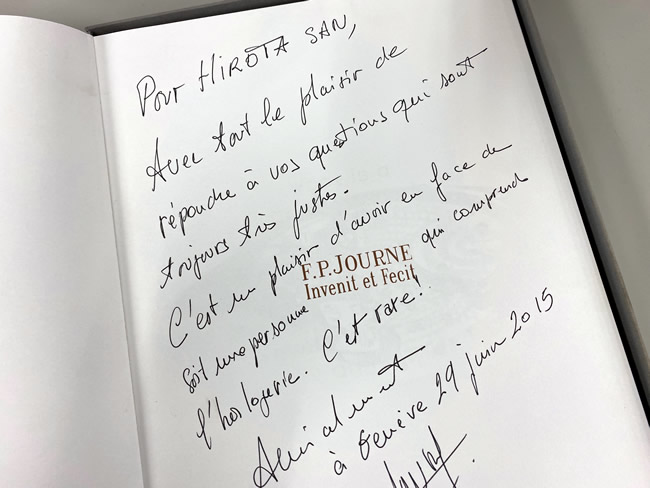 Pour HIROTA SAN,
Avec tout le plaisir de
répondre à vos questions qui sont
toujours très justes.
C'est un plaisir d'avoir en face de
soit une personne qui comprend
F.P.JOURNE
Invenit et Fecit
l'horlogerie. C'est rare!
Amicalement
à Genève 29 juin 2015